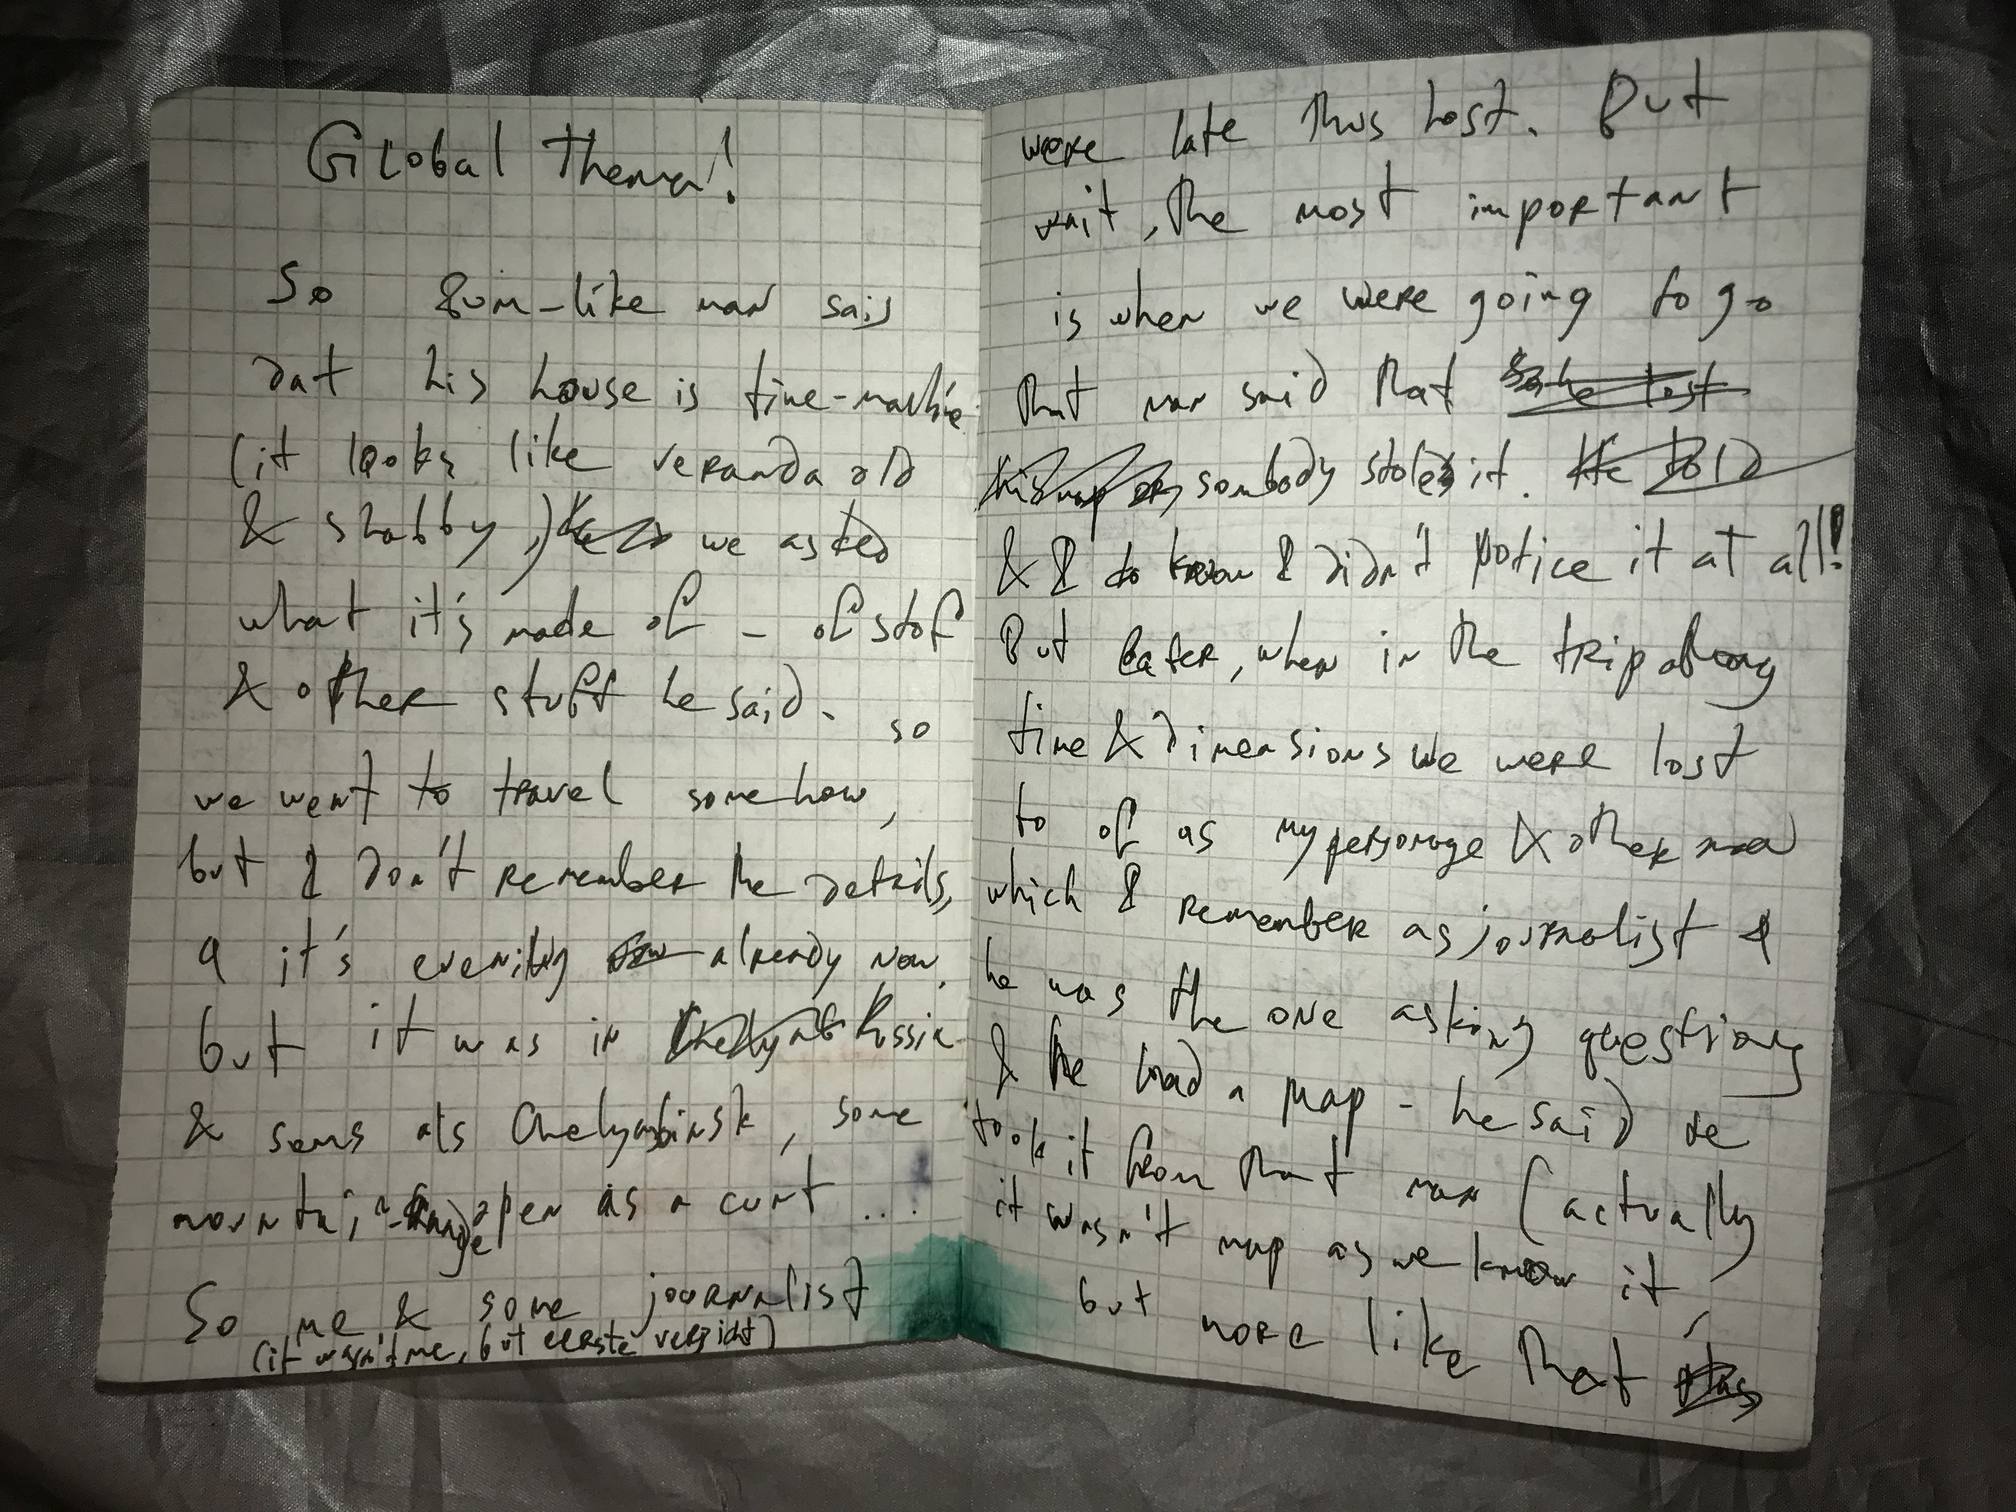 Global Thema!
So bum-like man said
dat his house is time-machine
(it looks like veranda old
& shabby,) we asked
what it's made of - of stof
& other stuff he said. so
we went to travel somehow,
but I don't remember the details,
a it's evening already now.
but it was in Russia
& sems als Chelyabinsk, some
mountain-range open as a cunt ....
So me & some journalist
(it wasn't me, but eerste verzicht)
were late thus lost. But
wait, the most important
is when we were going to go
that man said that
sombody stole it.
& I do know I didn't notice it at all!
But later, when in the trip along
time & dimensions we were lost
to of as my personage & other man
which I remember as journalist &
he was the one asking questions
& he had a map - he said we
took it from that man (actually
it wasn't map as we know it,
but more like that